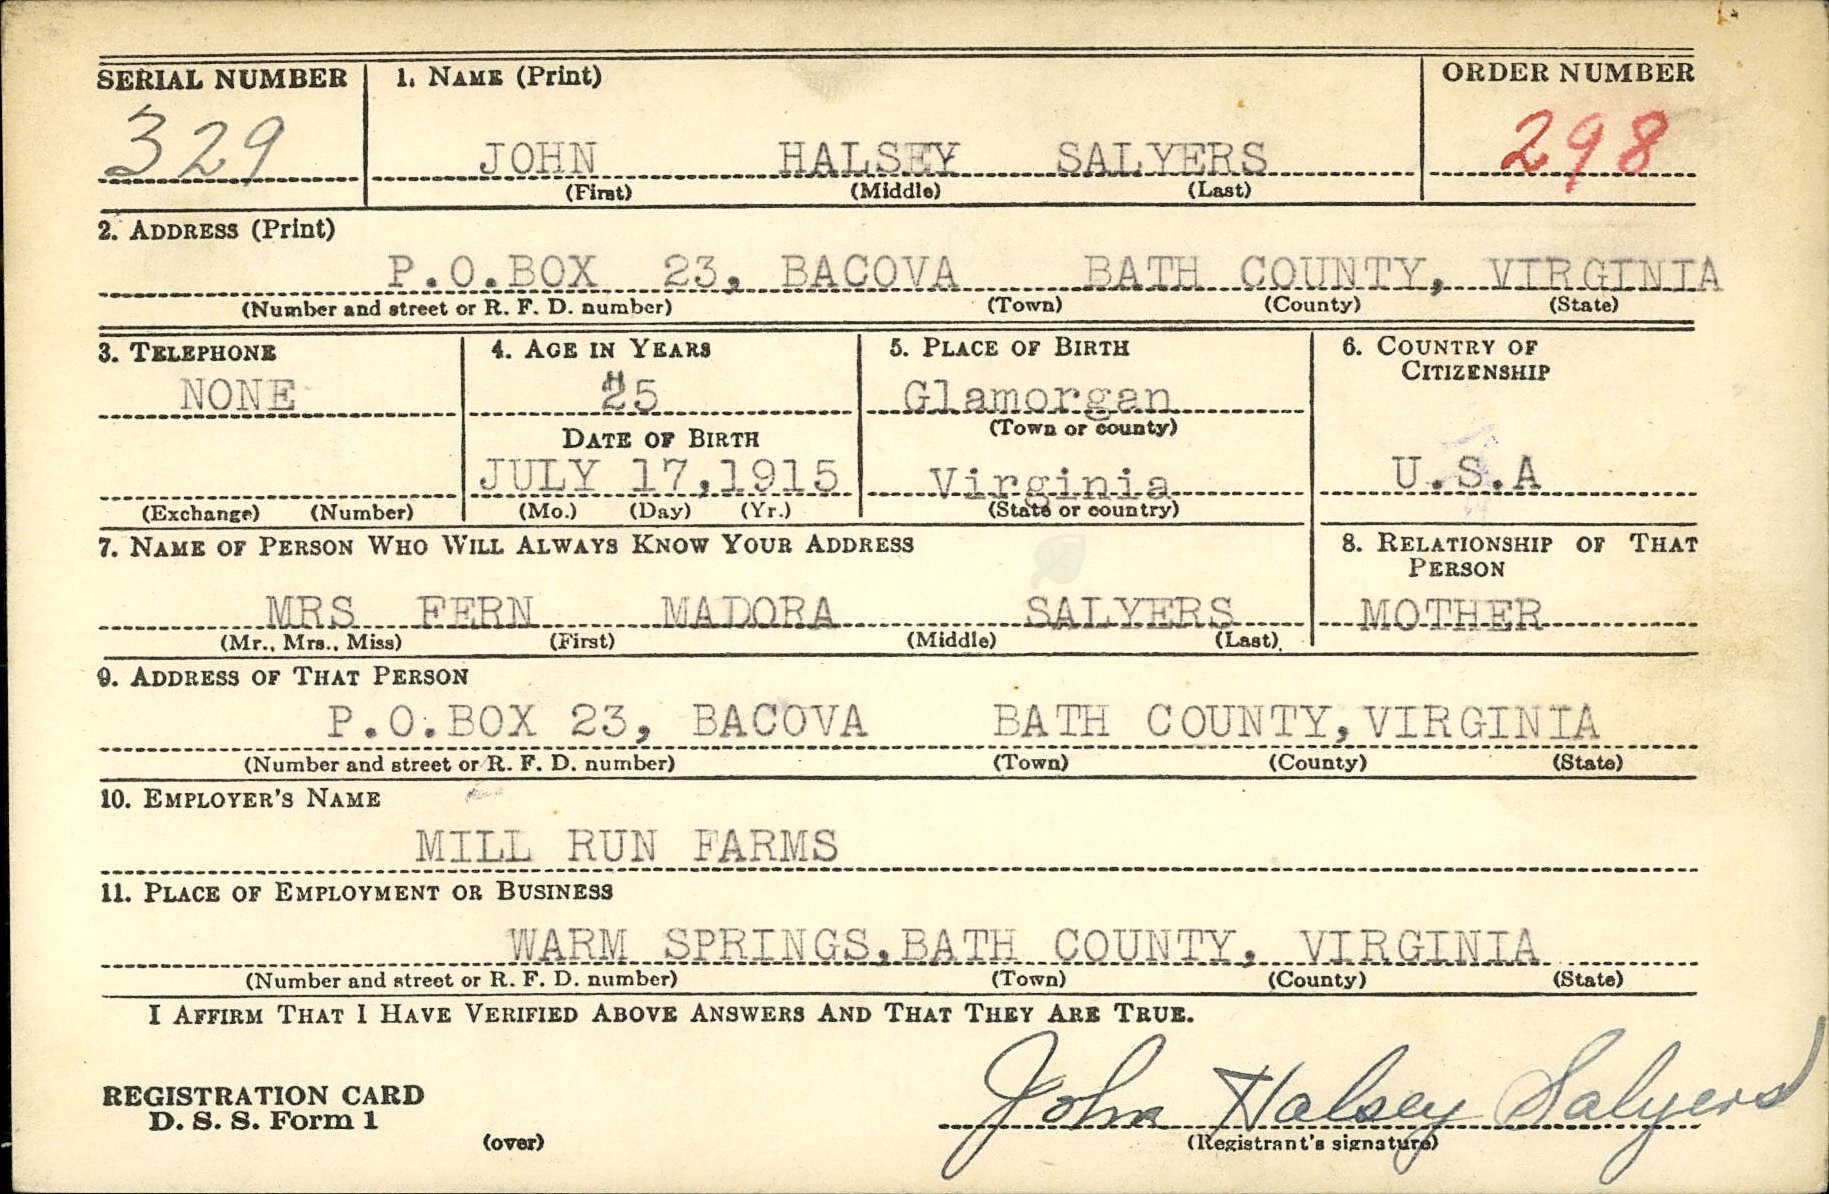 SERIAL NUMBER 1. NAME (Print) ORDER NUMBER
329 JOHN HALSEY SALYERS 298
(First) (Middle) (Last)
2. ADDRESS (Print)
P.O.BOX 23, BACOVA BATH COUNTY, VIRGINIA
(Number and street or R. F. D. number) (Town) (County) (State)
3. TELEPHONE 4. AGE IN YEARS 5. PLACE OF BIRTH 6. COUNTRY OF
CITIZENSHIP
NONE 25 Glamorgan
(Town or county)
DATE OF BIRTH
JULY 17,1915 Virginia U.S.A
(Exchange) (Number) (Mo.) (Day) (Yr.) (State or country)
7. NAME OF PERSON WHO WILL ALWAYS KNOW YOUR ADDRESS 8. RELATIONSHIP OF THAT
PERSON
MRS FERN MADORA SALYERS MOTHER
(Mr., Mrs., Miss) (First) (Middle) (Last)
9. ADDRESS OF THAT PERSON
P.O.BOX 23, BACOVA BATH COUNTY,VIRGINIA
(Number and street or R. F. D. number) (Town) (County) (State)
10. EMPLOYER'S NAME
MILL RUN FARMS
11. PLACE OF EMPLOYMENT OR BUSINESS
WARM SPRINGS,BATH COUNTY, VIRGINIA
(Number and street or R. F. D. number) (Town) (County) (State)
I AFFIRM THAT I HAVE VERIFIED ABOVE ANSWERS AND THAT THEY ARE TRUE.
REGISTRATION CARD
D. S. S. Form 1
John Halsey Salyers
(over) (Registrant's signature)